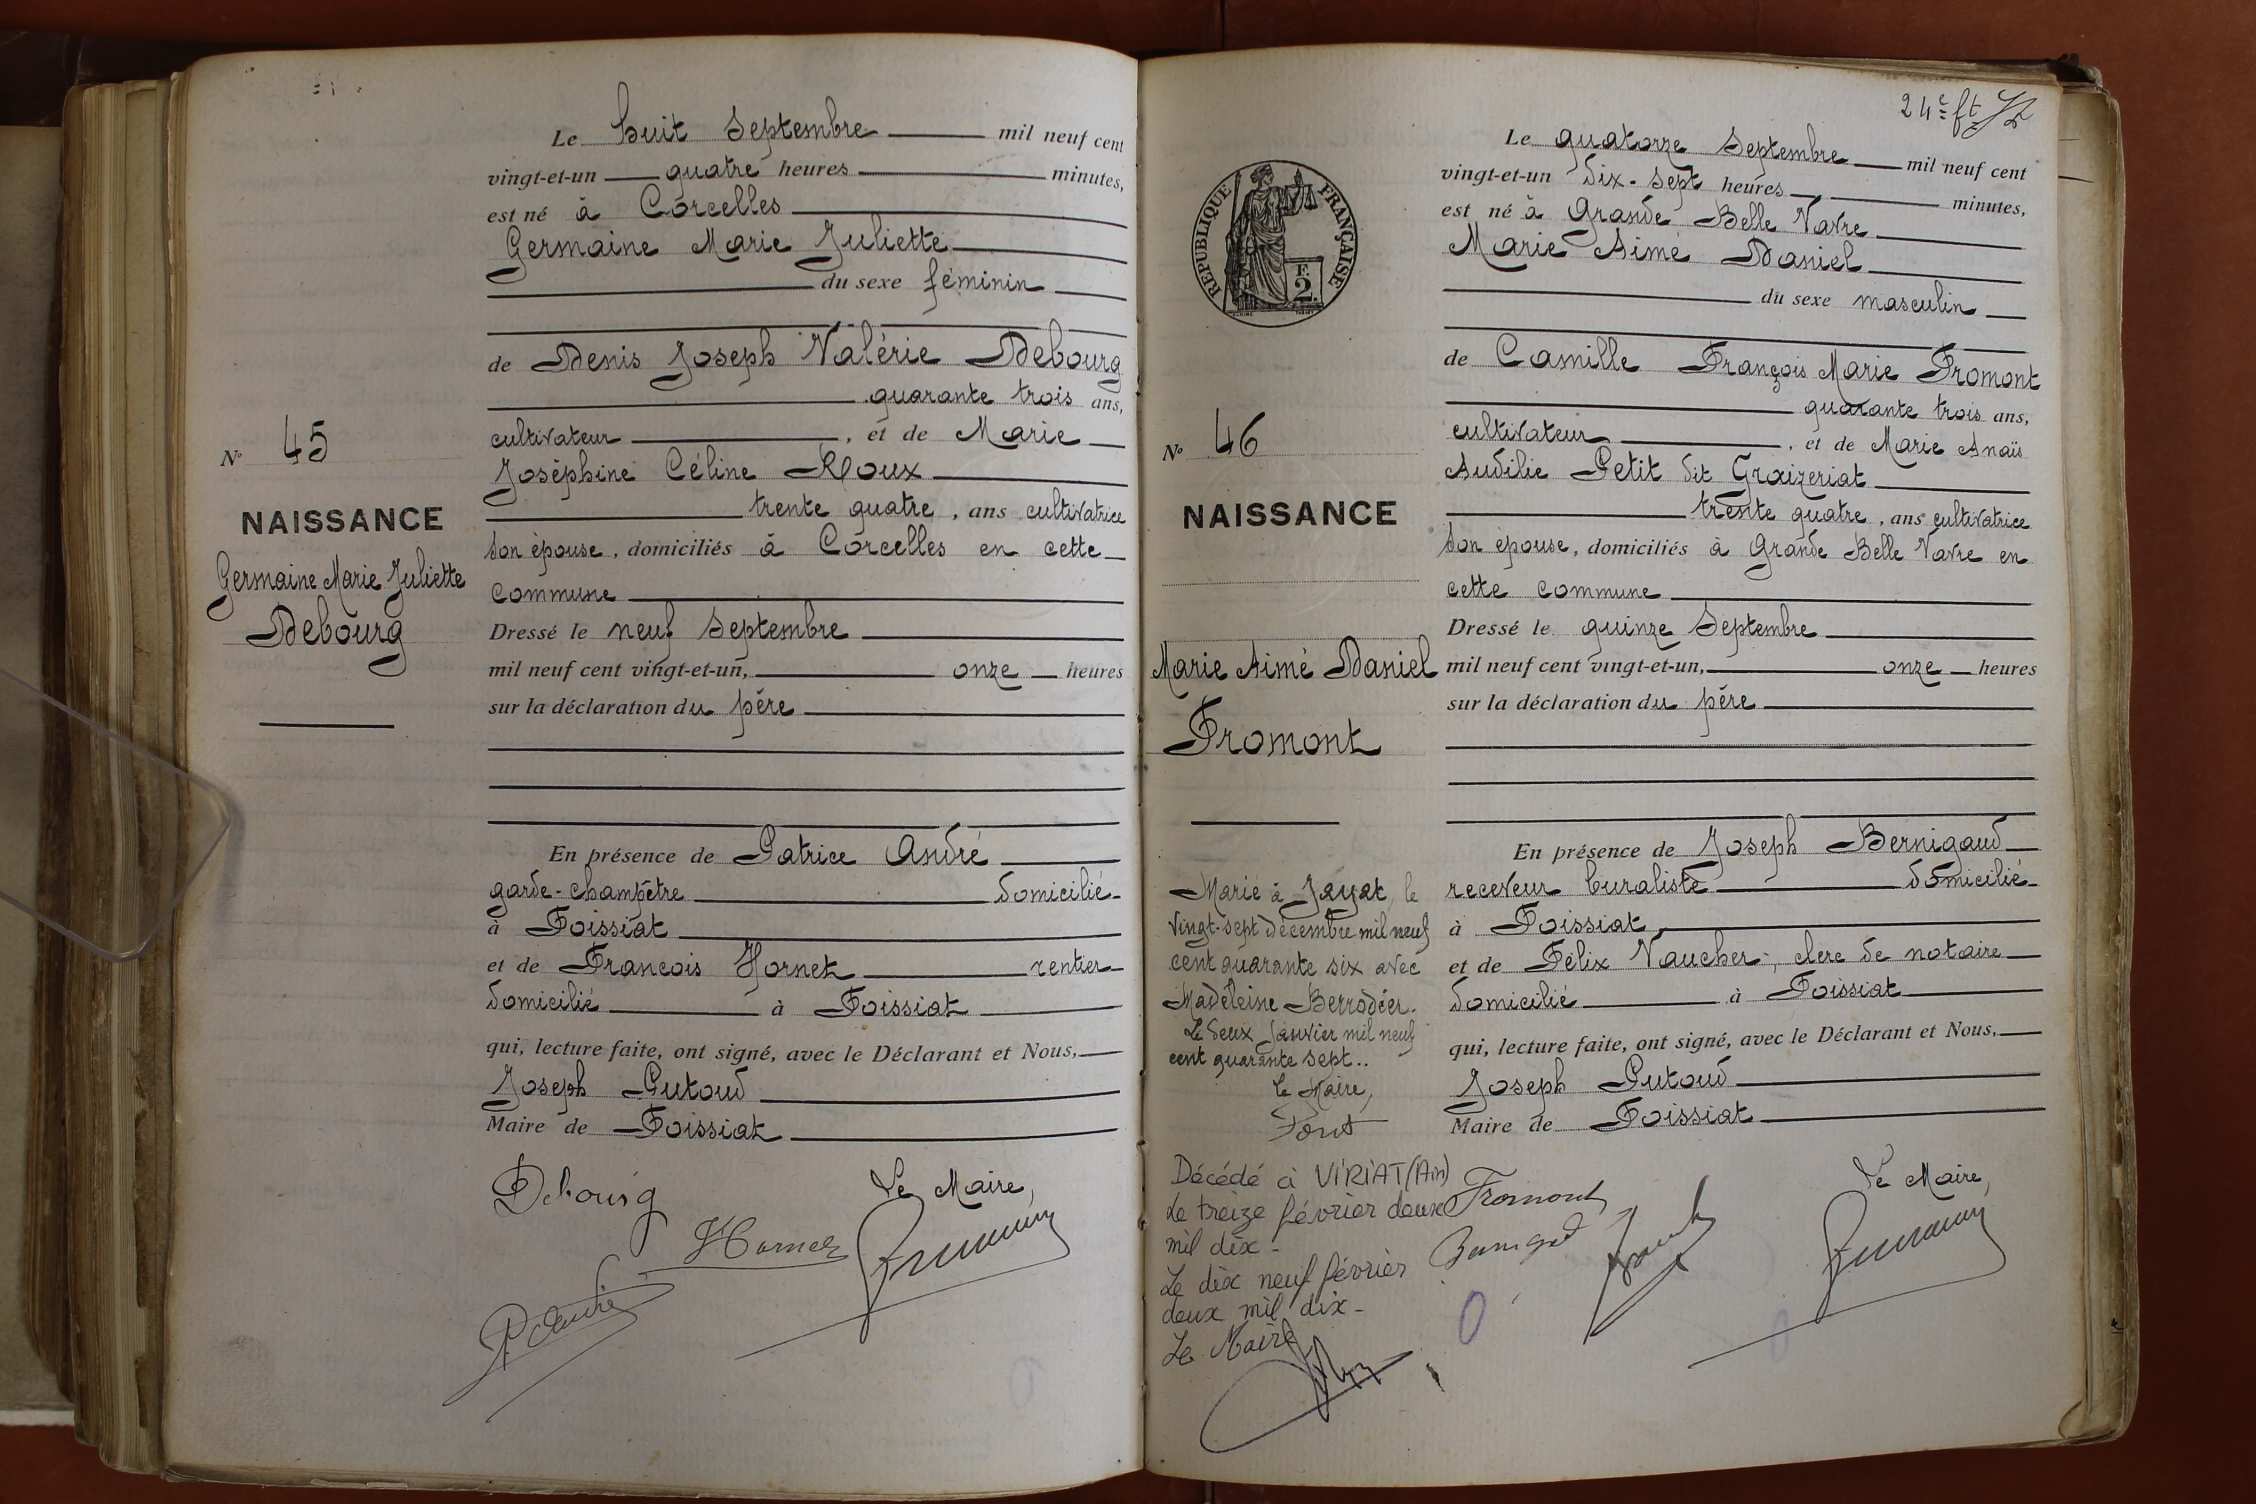 Le huit Septembre mil neuf cent
vingt-et-un quatre heures minutes,
est né à Corcelles
Germaine Marie Juliette
du sexe féminin
de Denis Joseph Valérie Debourg
quarante trois ans,
cultivateur, et de Marie
Joséphine Céline Roux
trente quatre, ans cultivatrice
son épouse, domiciliés à Corcelles en cette
commune
Dressé le neuf Septembre
mil neuf cent vingt-et-un, onze heures
sur la déclaration du père
En présence de Patrice André
garde-champêtre domicilié
à Foissiat
et de Francois Hornet rentier
domicilié à Foissiat
qui, lecture faite, ont signé, avec le Déclarant et Nous,
Joseph Putoud
Maire de Foissiat
Debourg
Le Maire,
N° 45
NAISSANCE
Germaine Marie Juliette
Debourg
24e ft
Le quatorze Septembre mil neuf cent
vingt-et-un dix-sept heures minutes,
est né à Grande Belle Vavre
Marie Aimé Daniel
du sexe masculin
de Camille François Marie Fromont
quarante trois ans,
cultivateur, et de Marie Anaïs
Audilie Petit dit Graizeriat
trente quatre, ans cultivatrice
son épouse, domiciliés à Grande Belle Vavre en
cette commune
Dressé le quinze Septembre
mil neuf cent vingt-et-un, onze heures
sur la déclaration du père
En présence de Joseph Bernigaud
receveur buraliste domicilié
à Foissiat
et de Félix Vaucher, clerc de notaire
domicilié à Foissiat
qui, lecture faite, ont signé, avec le Déclarant et Nous,
Joseph Putoud
Maire de Foissiat
Fromont
Le Maire,
RÉPUBLIQUE FRANÇAISE
F.
2.
N° 46
NAISSANCE
Marie Aimé Daniel
Fromont
Marié à Jayat, le
vingt-sept décembre mil neuf
cent quarante six avec
Madeleine Berrodier.
Le deux Janvier mil neuf
cent quarante sept..
Le Maire,
Décédé à VIRIAT (Ain)
Le treize février deux
mil dix -
Le dix neuf février
deux mil dix -
Le Maire